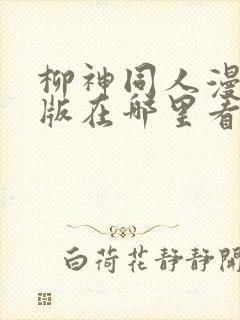 柳神同人漫
版在哪里看
白荷花静静開